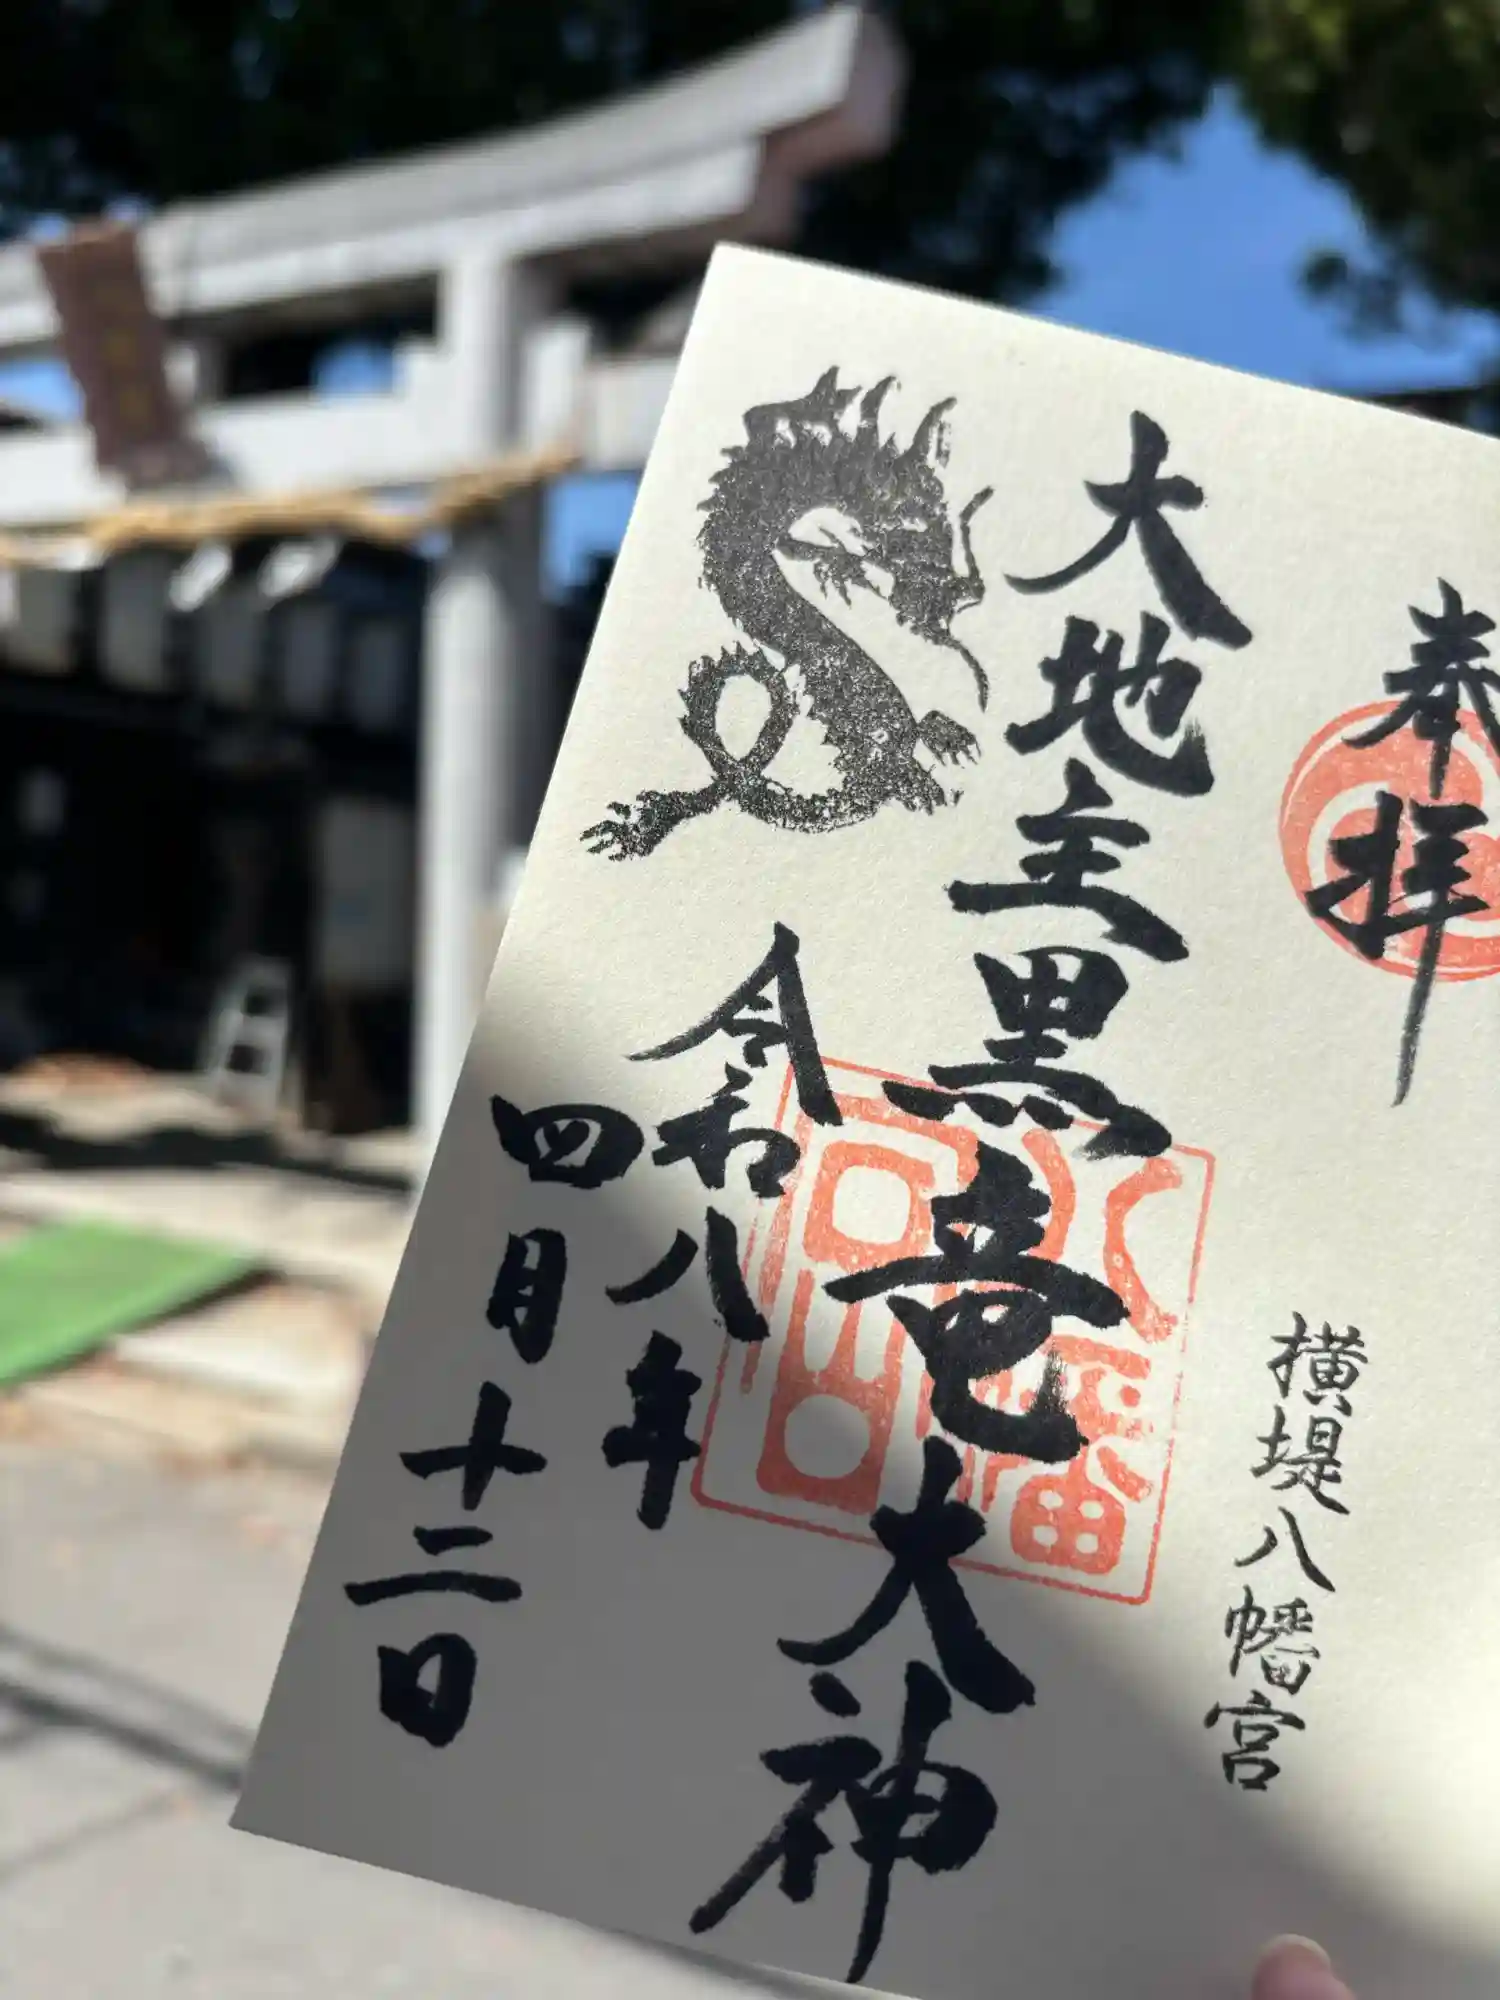 奉拝
横堤八幡宮
大地主黒竜大神
令和八年
四月十二日